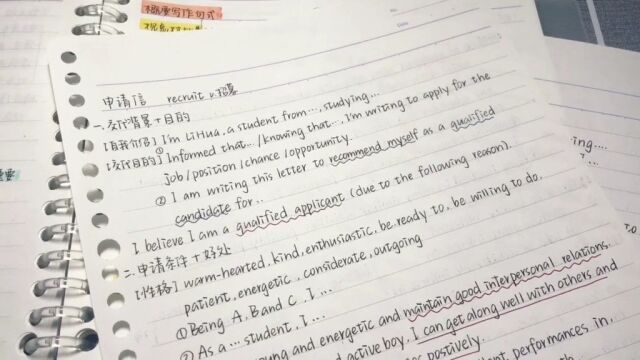 概要写作句式
申请信 recruit v.招募
一、交代背景+目的
[自我介绍] I'm LiHua, a student from..., studying...
[交代目的] ① Informed that.../knowing that..., I'm writing to apply for the
job/position/chance/opportunity.
② I am writing this letter to recommend myself as a qualified
candidate for..
I believe I am a qualified applicant (due to the following reason).
二、申请条件+好处
[性格] warm-hearted, kind, enthusiastic, be ready to, be willing to do,
patient, energetic, considerate, outgoing
① Being A, B and C, I...
② As a ... student, I...
young and energetic and maintain good interpersonal relations.
and active boy, I can get along well with others and
postively.
performances in,
ing....